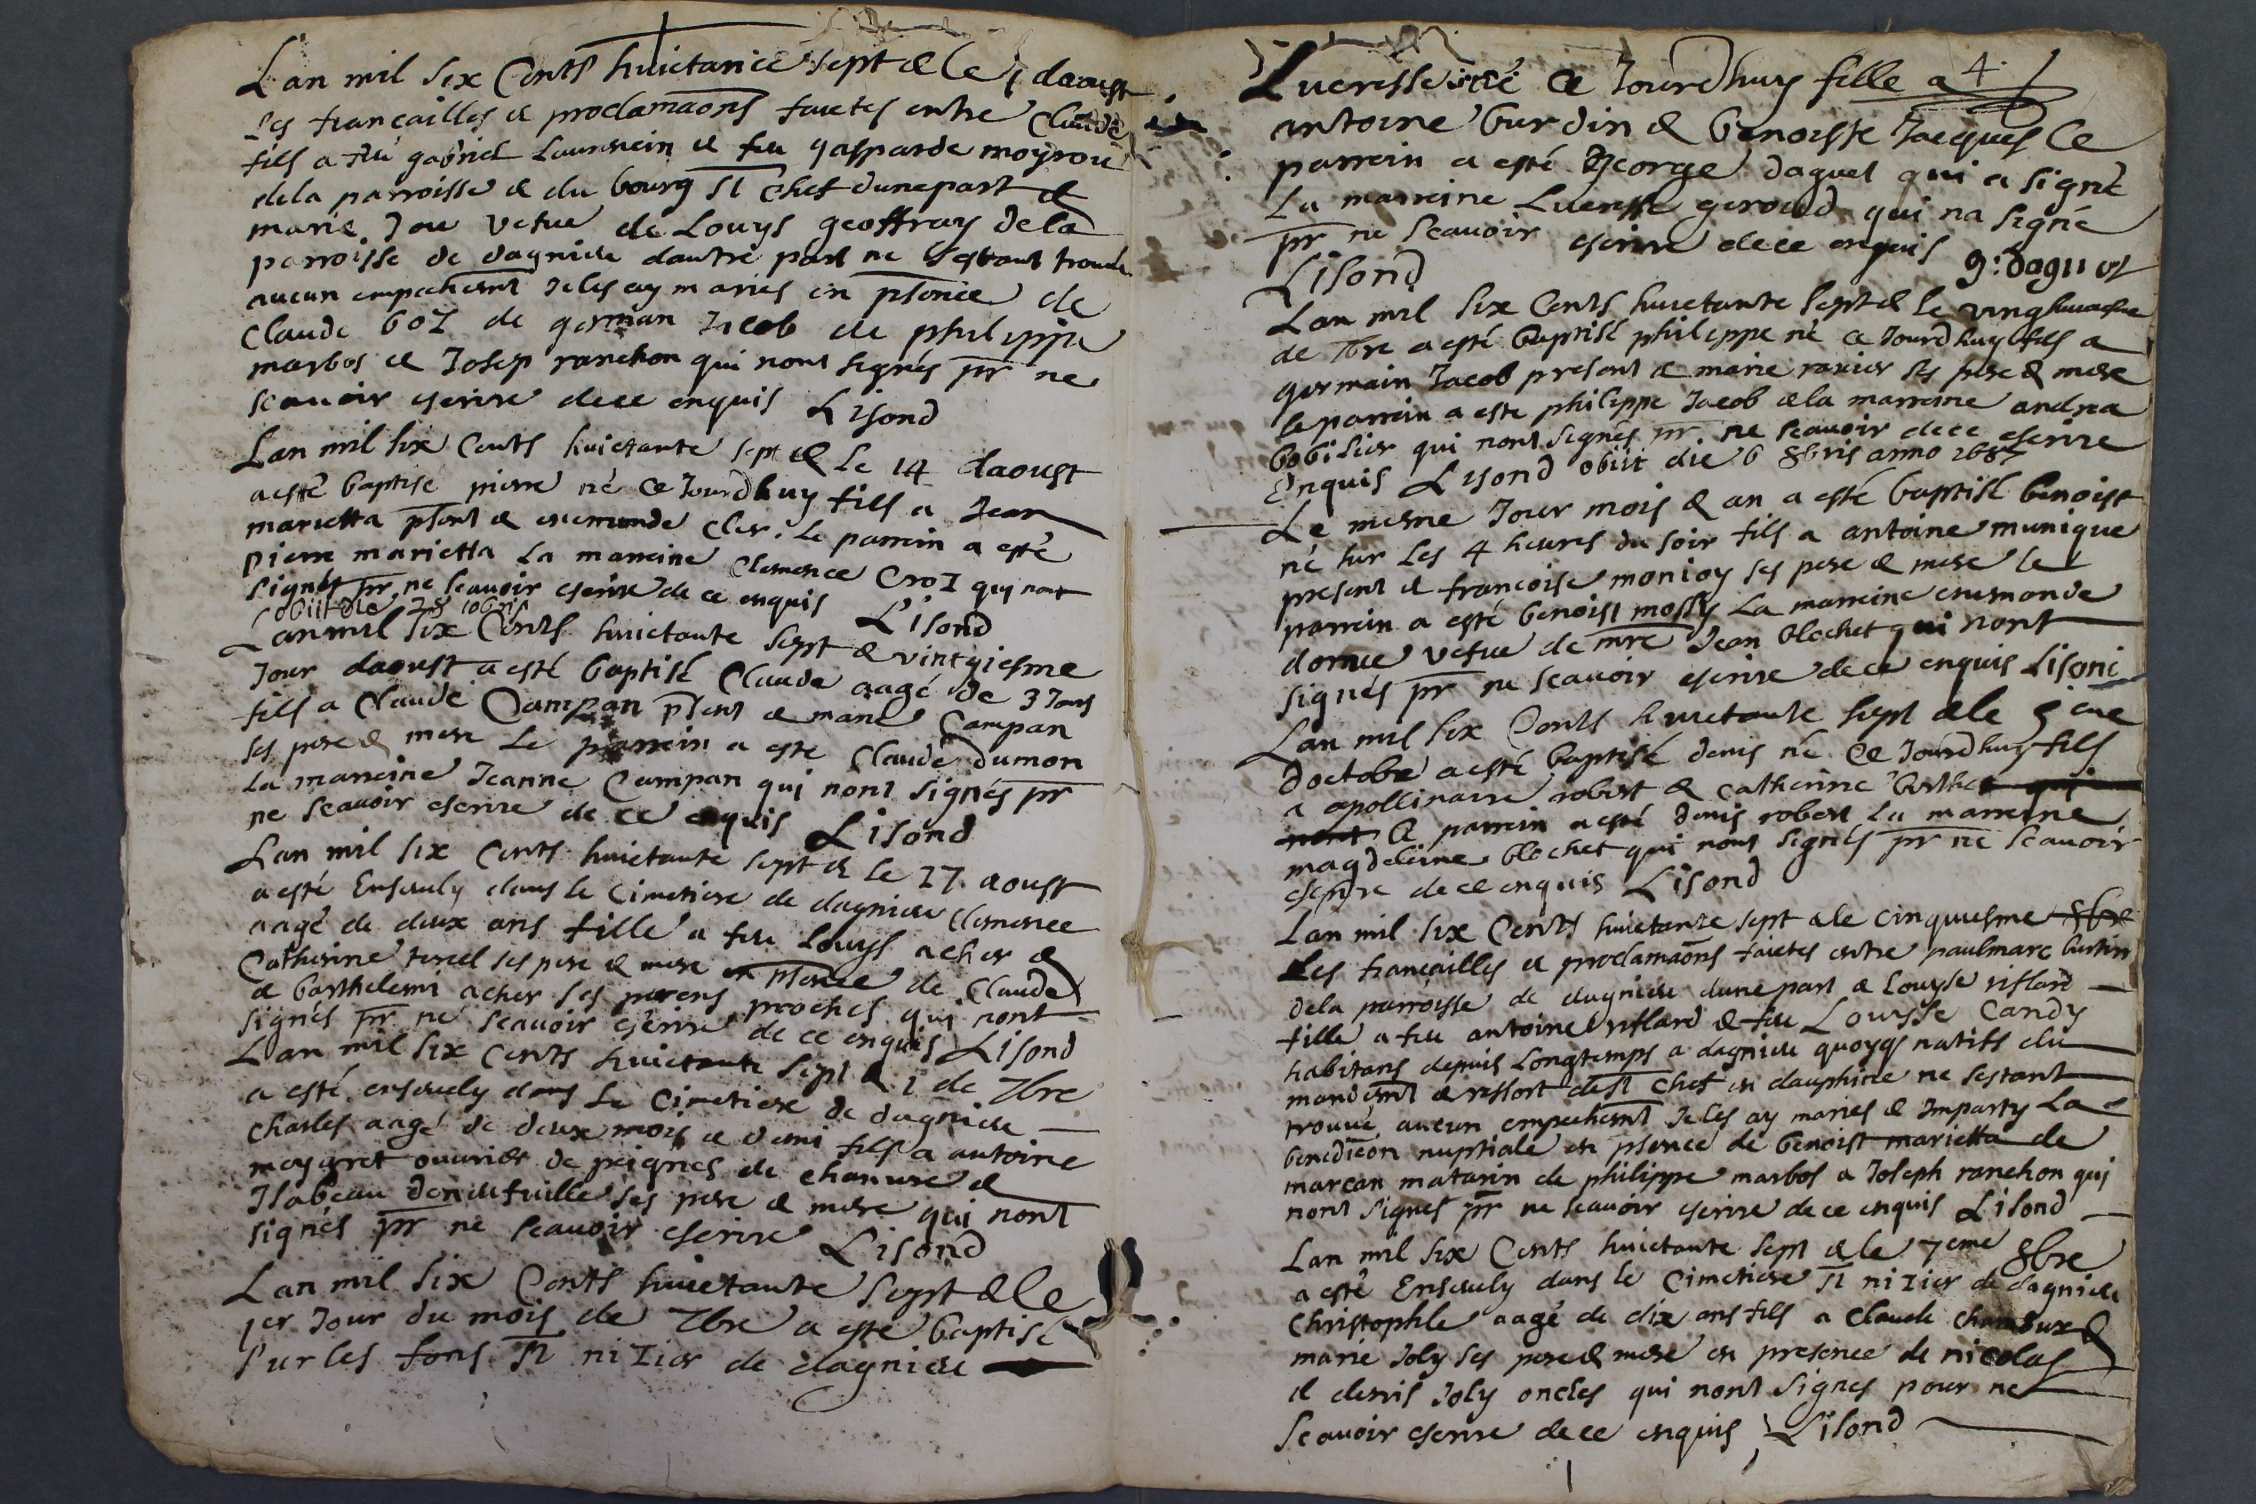 Lan mil six Cents huictante sept & le 1 daoust
Les fiancailles & proclamaons faictes entre Claude
fils a feu gabriel Laurencin & feu gasparde moyroud
de la parroisse & du bourg St Chef dune part &
marie Jou vefue de Louys geoffray de la
parroisse de dagnieu dautre part ne sestant trouué
aucun empechemt Je les ay mariés en psence de
Claude boz de german Jacob de philippe
marbos & Josep ranchon qui nont signés pr ne
scauoir escrire de ce enquis Lisond
Lan mil six Cents huictante sept & le 14 daoust
a esté baptise pierre né ce Jourdhuy fils a Jean
marietta psent & enemunde Cler. Le parrein a esté
pierre marietta La marreine Clemence Croz qui nont
signés pr ne scauoir escrire de ce enquis Lisond
obiit die 28
Lan mil six Cents huictante sept & vintgiesme
Jour daoust a esté baptisé Claude aagé de 3 Jours
fils a Claude Campan psent & marie Campan
ses pere & mere Le parrein a este Claude dumon
La marreine Jeanne Campan qui nont signés pr
ne scauoir escrire de ce enquis Lisond
Lan mil six Cents huictante sept & le 27 aoust
a esté Enseuely dans le Cimetiere de dagnieu Clemence
aagé de deux ans fille a feu Louys acher &
Catherine tercel ses pere & mere en psence de Claude
& barthelemi acher ses parens proches qui nont
signés pr ne scauoir escrire de ce enquis Lisond
Lan mil six Cents huictante sept & 1 de 7bre
a esté enseuely dans Le Cimetiere de dagnieu
Charles aagé de deux mois & demi fils a antoine
moygret ouurier de peignes de chanure &
Isabeau deneufuille ses pere & mere qui nont
signés pr ne scauoir escrire Lisond
Lan mil six Cents huictante sept & le
1er Jour du mois de 7bre a este baptisé
sur les fons St nizier de dagnieu
Lucresse née ce Jourdhuy fille a 4
antoine burdin & benoiste Jacques Le
parrein a esté George daguet qui a signé
La marreine Lucresse giroud qui na signé
pr ne scauoir escrire de ce enquis g: daguet
Lisond
Lan mil six Cents huictante sept & le
de 7bre a esté baptisé philippe né ce Jourdhuy fils a
germain Jacob present & marie ranier ses pere & mere
le parrein a este philippe Jacob & la marreine andrea
bobilier qui nont signés pr ne scauoir de ce escrire
Enquis Lisond obiit die 6 8bris anno 1687
Le mesme Jour mois & an a esté baptisé benoist
né sur les 4 heures du soir fils a antoine munique
present & francoise monioy ses pere & mere le
parrein a esté benoist mossy La marreine enemonde
dornue vefue de mre Jean blochet qui nont
signés pr ne scauoir escrire de ce enquis Lisond
Lan mil six Cents huictante sept & le 5eme
doctobre a esté baptisé denis né ce Jourdhuy fils
a apollinaire robert & Catherine berthet qui
nont Le parrein a esté denis robert La marreine
magdeleine blochet qui nont signés pr ne scauoir
escrire de ce enquis Lisond
Lan mil six Cents huictante sept & le cinquiesme 8bre
Les fiancailles & proclamaons faictes entre paulmarc burtin
de la parroisse de dagnieu dune part & Louyse riflard
fille a feu antoine riflard & feu Louisse Candy
habitans depuis Longtemps a dagnieu quoyqs natifs du
mandemt & ressort de St Chef en dauphine ne sestant
trouué aucun empechemt Je les ay mariés & Imparty La
benediction nuptiale en psence de benoist marietta de
marcan matarin de philippe marbos & Joseph ranchon qui
nont signés pr ne scauoir escrire de ce enquis Lisond
Lan mil six Cents huictante sept & le 7eme 8bre
a esté Enseuely dans le Cimetiere St nizier de dagnieu
Christophle aagé de dix ans fils a Claude &
marie Joly ses pere & mere en presence de nicolas
& denis Joly oncles qui nont signes pour ne
Scauoir escrire de ce enquis Lisond